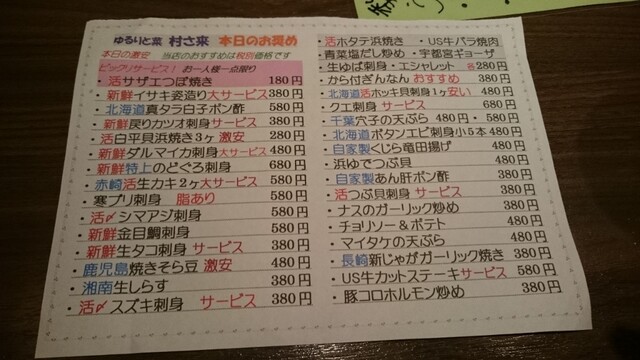 ゆるりと菜 村さ来 本日のお奨め
本日の激安 当店のおすすめは税別価格です
ビックリサービス! お一人様一点限り
・活サザエつぼ焼き 180円
・新鮮イサキ姿造り大サービス380円
・北海道真タラ白子ポン酢 580円
・新鮮戻りカツオ刺身サービス 380円
・活白平貝浜焼き3ヶ激安 280円
・新鮮ダルマイカ刺身大サービス480円
・新鮮特上のどぐろ刺身 680円
・赤崎活生カキ2ヶ大サービス 580円
・寒ブリ刺身 脂あり 580円
・活〆シマアジ刺身 580円
・新鮮金目鯛刺身 580円
・新鮮生タコ刺身 サービス 380円
・鹿児島焼きそら豆 激安 480円
・湘南生しらす 380円
・活〆スズキ刺身 サービス 380円
・活ホタテ浜焼き ・US牛バラ焼肉
・青菜塩だし炒め ・宇都宮ギョーザ
・生ゆば刺身・エシャレット 各280円
・から付ぎんなん おすすめ 380円
・北海道活ホッキ貝刺身1ヶ安い 480円
・クエ刺身 サービス 680円
・千葉穴子の天ぷら 480円・580円
・北海道ボタンエビ刺身小5本480円
・自家製くじら竜田揚げ 480円
・浜ゆでつぶ貝 480円
・自家製あん肝ポン酢 380円
・活つぶ貝刺身 サービス 480円
・ナスのガーリック炒め 380円
・チョリソー&ポテト 480円
・マイタケの天ぷら 480円
・長崎新じゃがガーリック焼き 380円
・US牛カットステーキサービス 580円
・豚コロホルモン炒め 380円